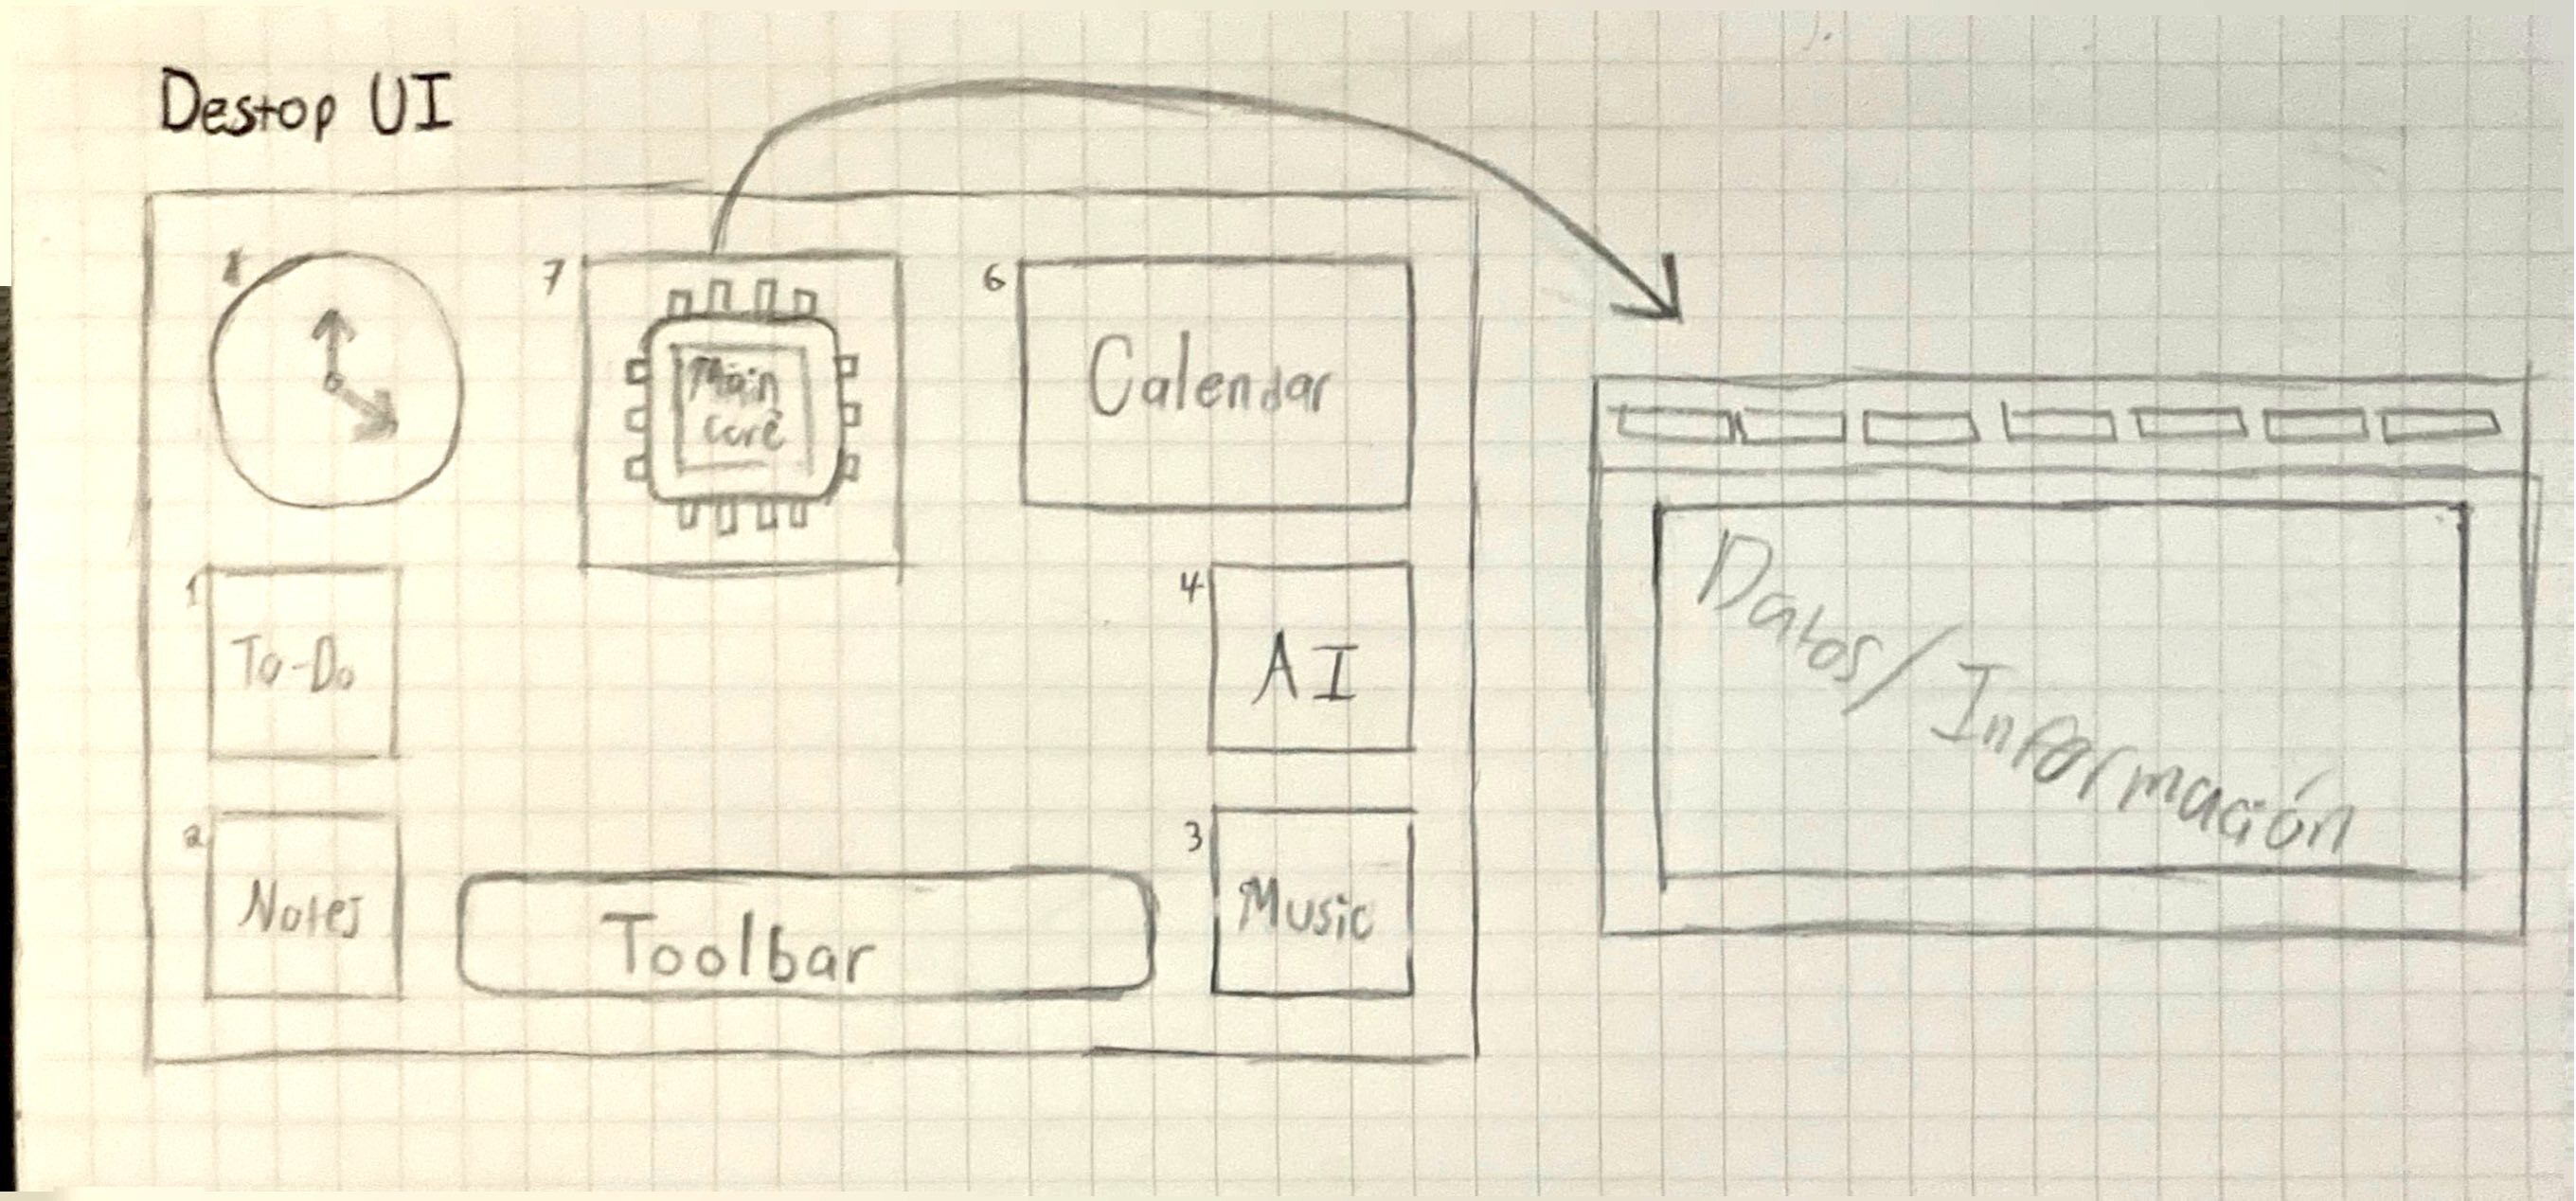 Destop UI
7
Main
core
6
Calendar
1
To-Do
4
AI
2
Notes
Toolbar
3
Music
Datos/Información